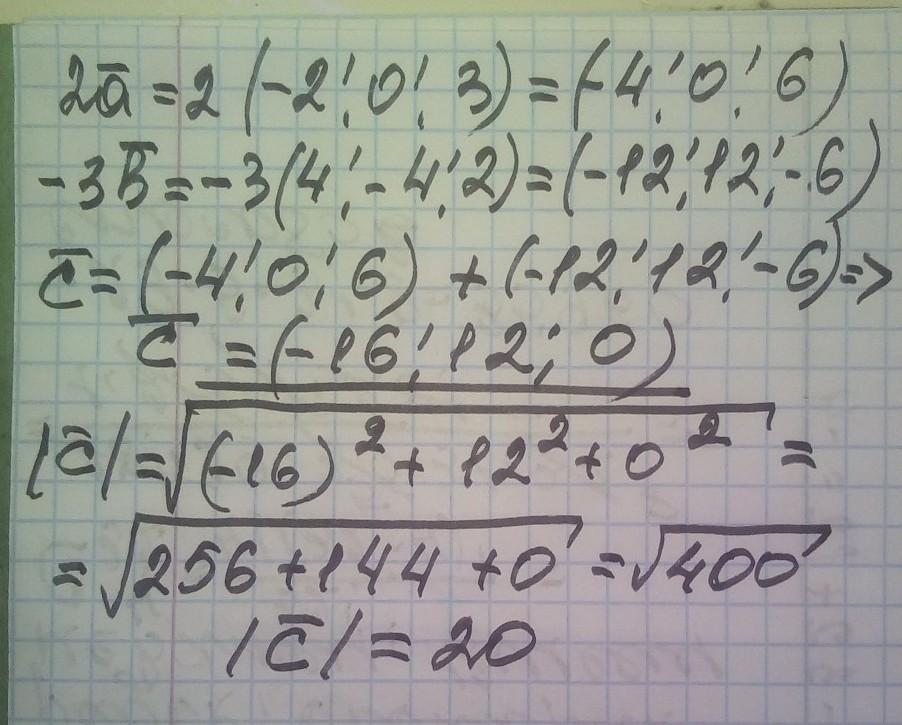 2a̅ = 2 (-2; 0; 3) = (-4; 0; 6)
-3b̅ = -3(4; -4; 2) = (-12; 12; -6)
c̅ = (-4; 0; 6) + (-12; 12; -6) =>
c̅ = (-16; 12; 0)
|c̅| = √((-16)² + 12² + 0²) =
= √(256 + 144 + 0) = √400
|c̅| = 20